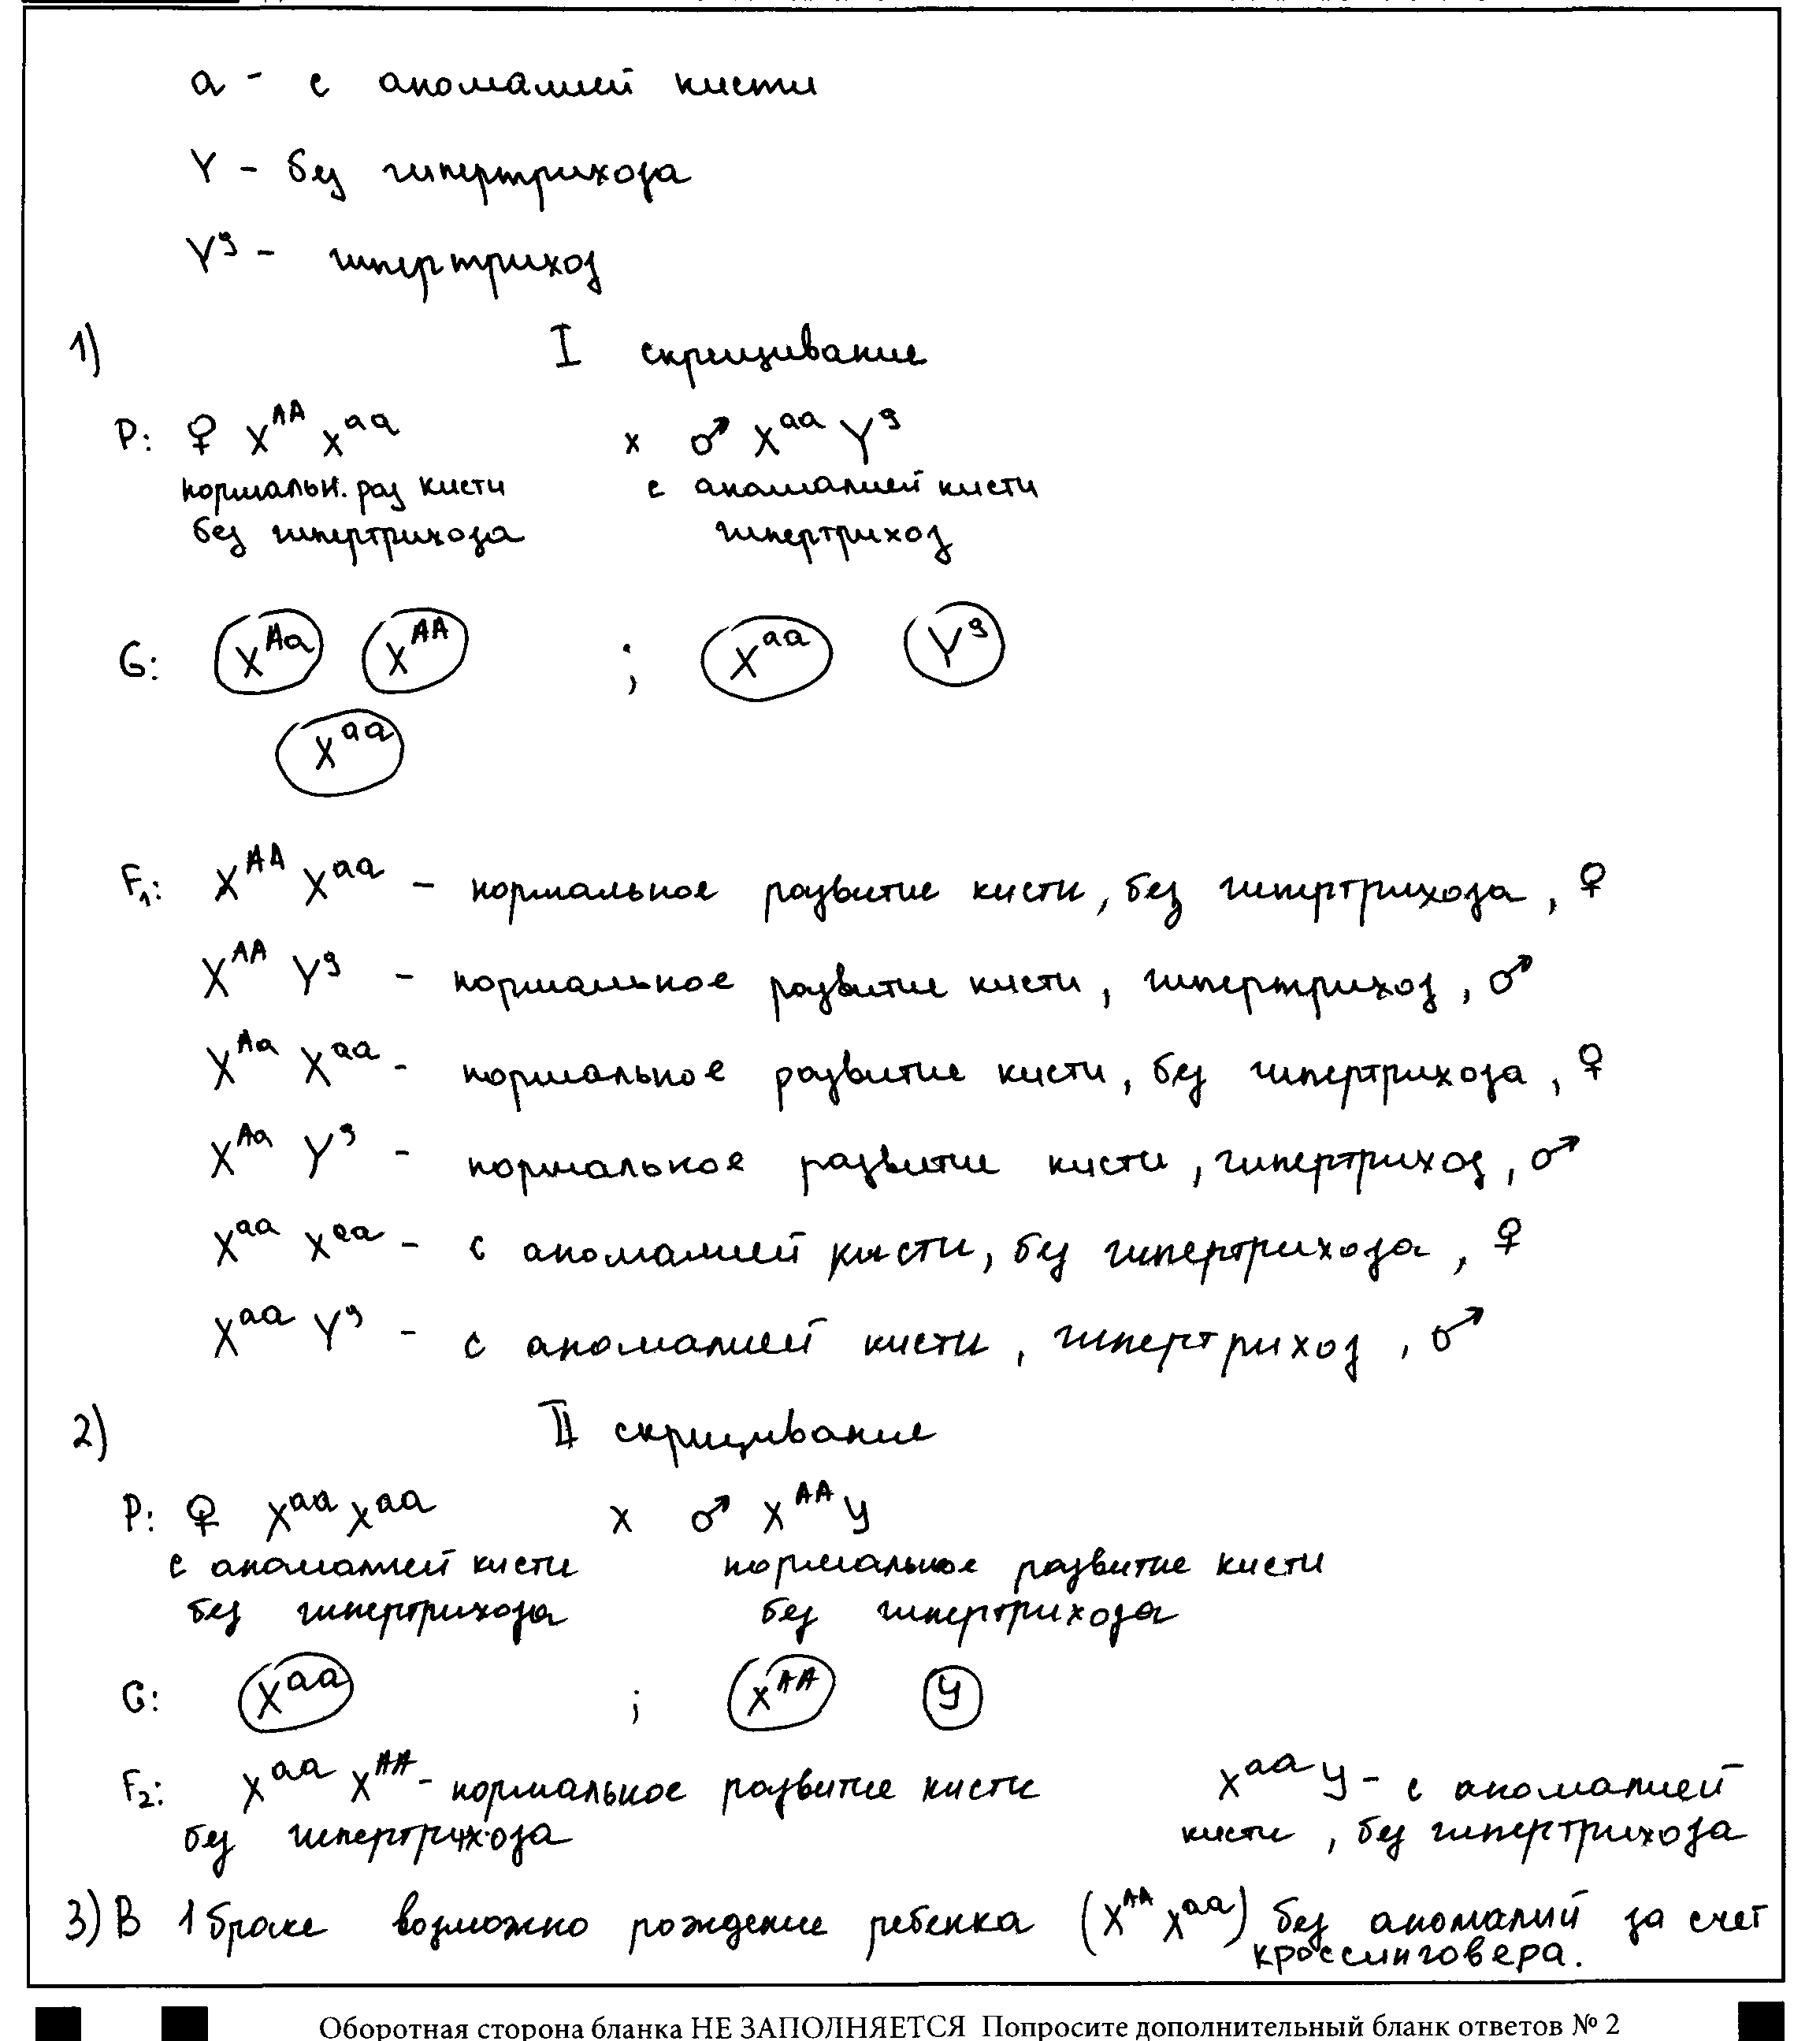 а - с аномалией кисти
Y - без гипертрихоза
Yᵍ - гипертрихоз
1) I скрещивание
P: ♀ Xᴬᴬ Xᵃᵃ x ♂ Xᵃᵃ Yᵍ
нормальн. раз кисти с аномалией кисти
без гипертрихоза гипертрихоз
G: Xᴬᵃ Xᴬᴬ ; Xᵃᵃ Yᵍ
Xᵃᵃ
F₁: Xᴬᴬ Xᵃᵃ - нормальное развитие кисти, без гипертрихоза, ♀
Xᴬᴬ Yᵍ - нормальное развитие кисти, гипертрихоз, ♂
Xᴬᵃ Xᵃᵃ - нормальное развитие кисти, без гипертрихоза, ♀
Xᴬᵃ Yᵍ - нормальное развитие кисти, гипертрихоз, ♂
Xᵃᵃ Xᵃᵃ - с аномалией кисти, без гипертрихоза, ♀
Xᵃᵃ Yᵍ - с аномалией кисти, гипертрихоз, ♂
2) II скрещивание
P: ♀ Xᵃᵃ Xᵃᵃ x ♂ Xᴬᴬ У
с аномалией кисти нормальное развитие кисти
без гипертрихоза без гипертрихоза
G: Xᵃᵃ ; Xᴬᴬ У
F₂: Xᵃᵃ Xᴬᴬ - нормальное развитие кисти Xᵃᵃ У - с аномалией
без гипертрихоза кисти, без гипертрихоза
3) В 1 браке возможно рождение ребенка (Xᴬᴬ Xᵃᵃ) без аномалий за счет
кроссинговера.
Оборотная сторона бланка НЕ ЗАПОЛНЯЕТСЯ Попросите дополнительный бланк ответов № 2